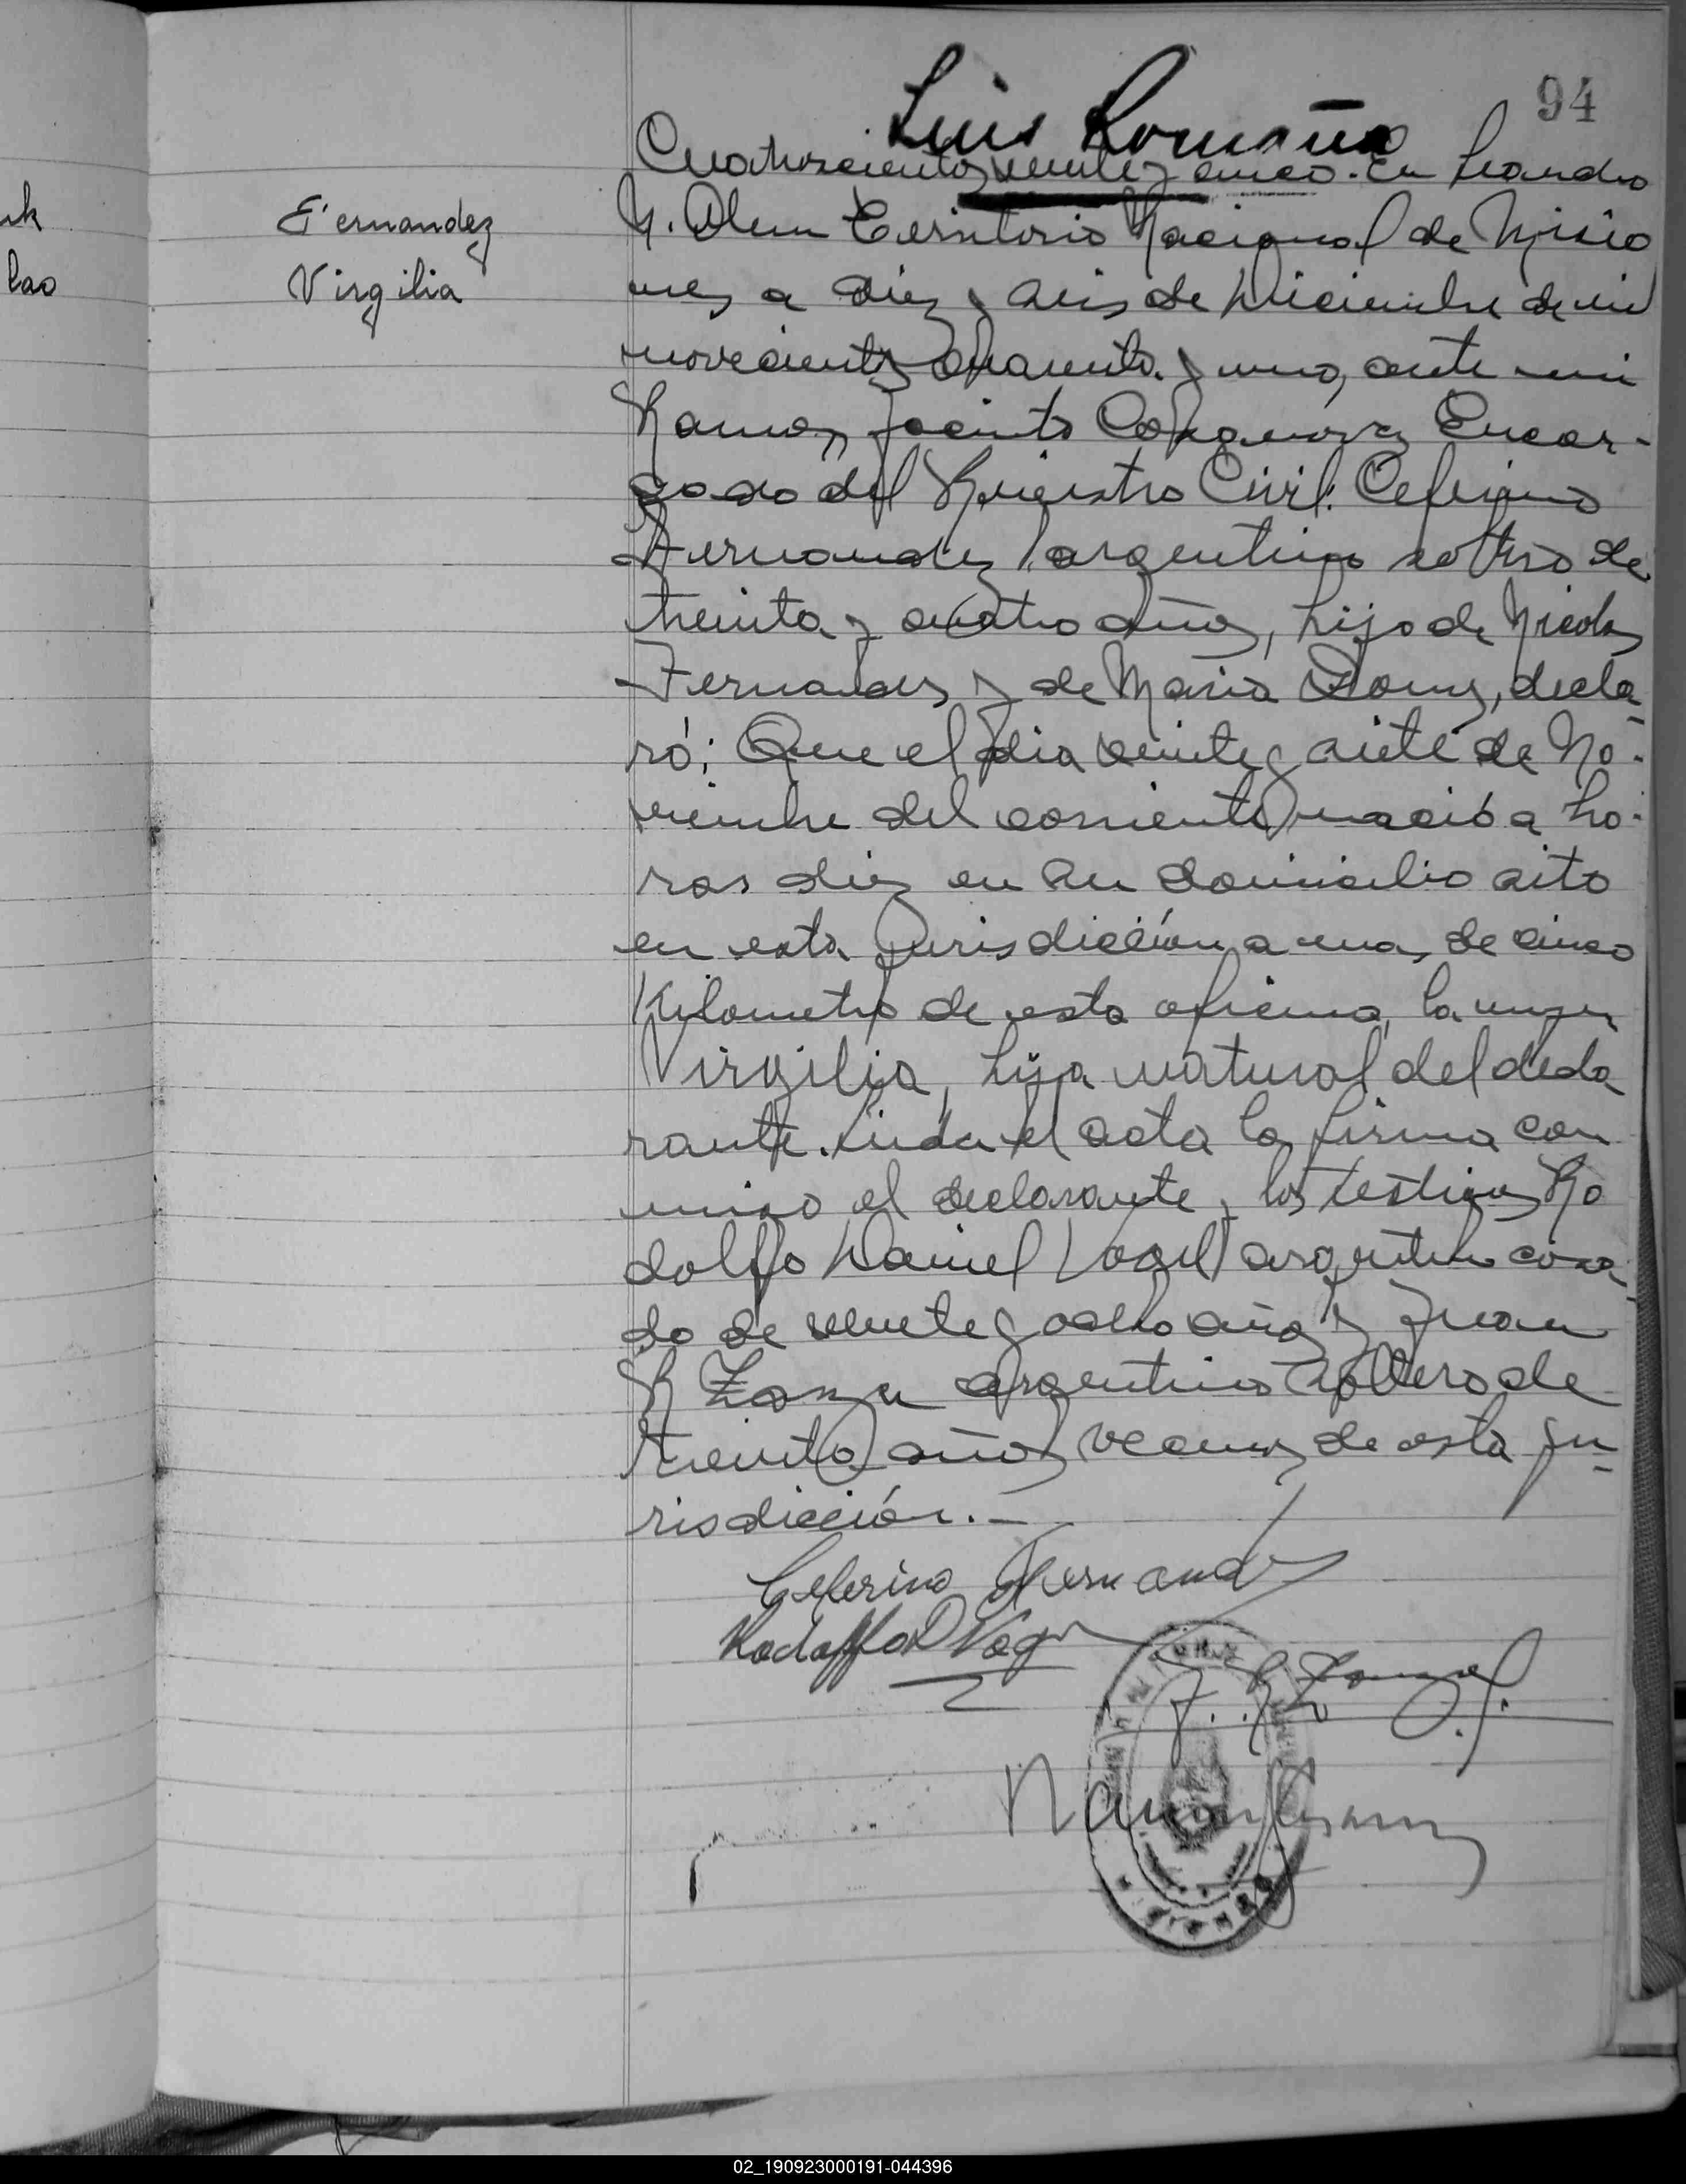 94
Luis Romaña
Cuatrocientos veinte y cinco. En Leandro
N. Alem Territorio Nacional de Misio
nes a diez y seis de Diciembre de mil
novecientos cuarenta y uno, ante mi
Ramon Jacinto Encar-
gado del Registro Civil: Ceferino
Fernandez argentino soltero de
treinta y cuatro años, hijo de Nicolas
Fernandez y de Maria decla
ró: Que el dia veinte y siete de No-
viembre del corriente nació a ho-
ras diez en su domicilio sito
en esta jurisdicción a mas de cinco
Kilometros de esta oficina, la mujer
Virgilia, hija natural del decla
rante. Leida el acta la firma con
migo el declarante y los testigos Ro
dolfo Daniel Vogel argentino casa-
do de veinte y ocho años y Juan
R argentino soltero de
treinta años vecinos de esta ju-
risdicción.-
Ceferino Fernandez
Rodolfo D Vogel
Fernandez
Virgilia
nk
lao
02_190923000191-044396